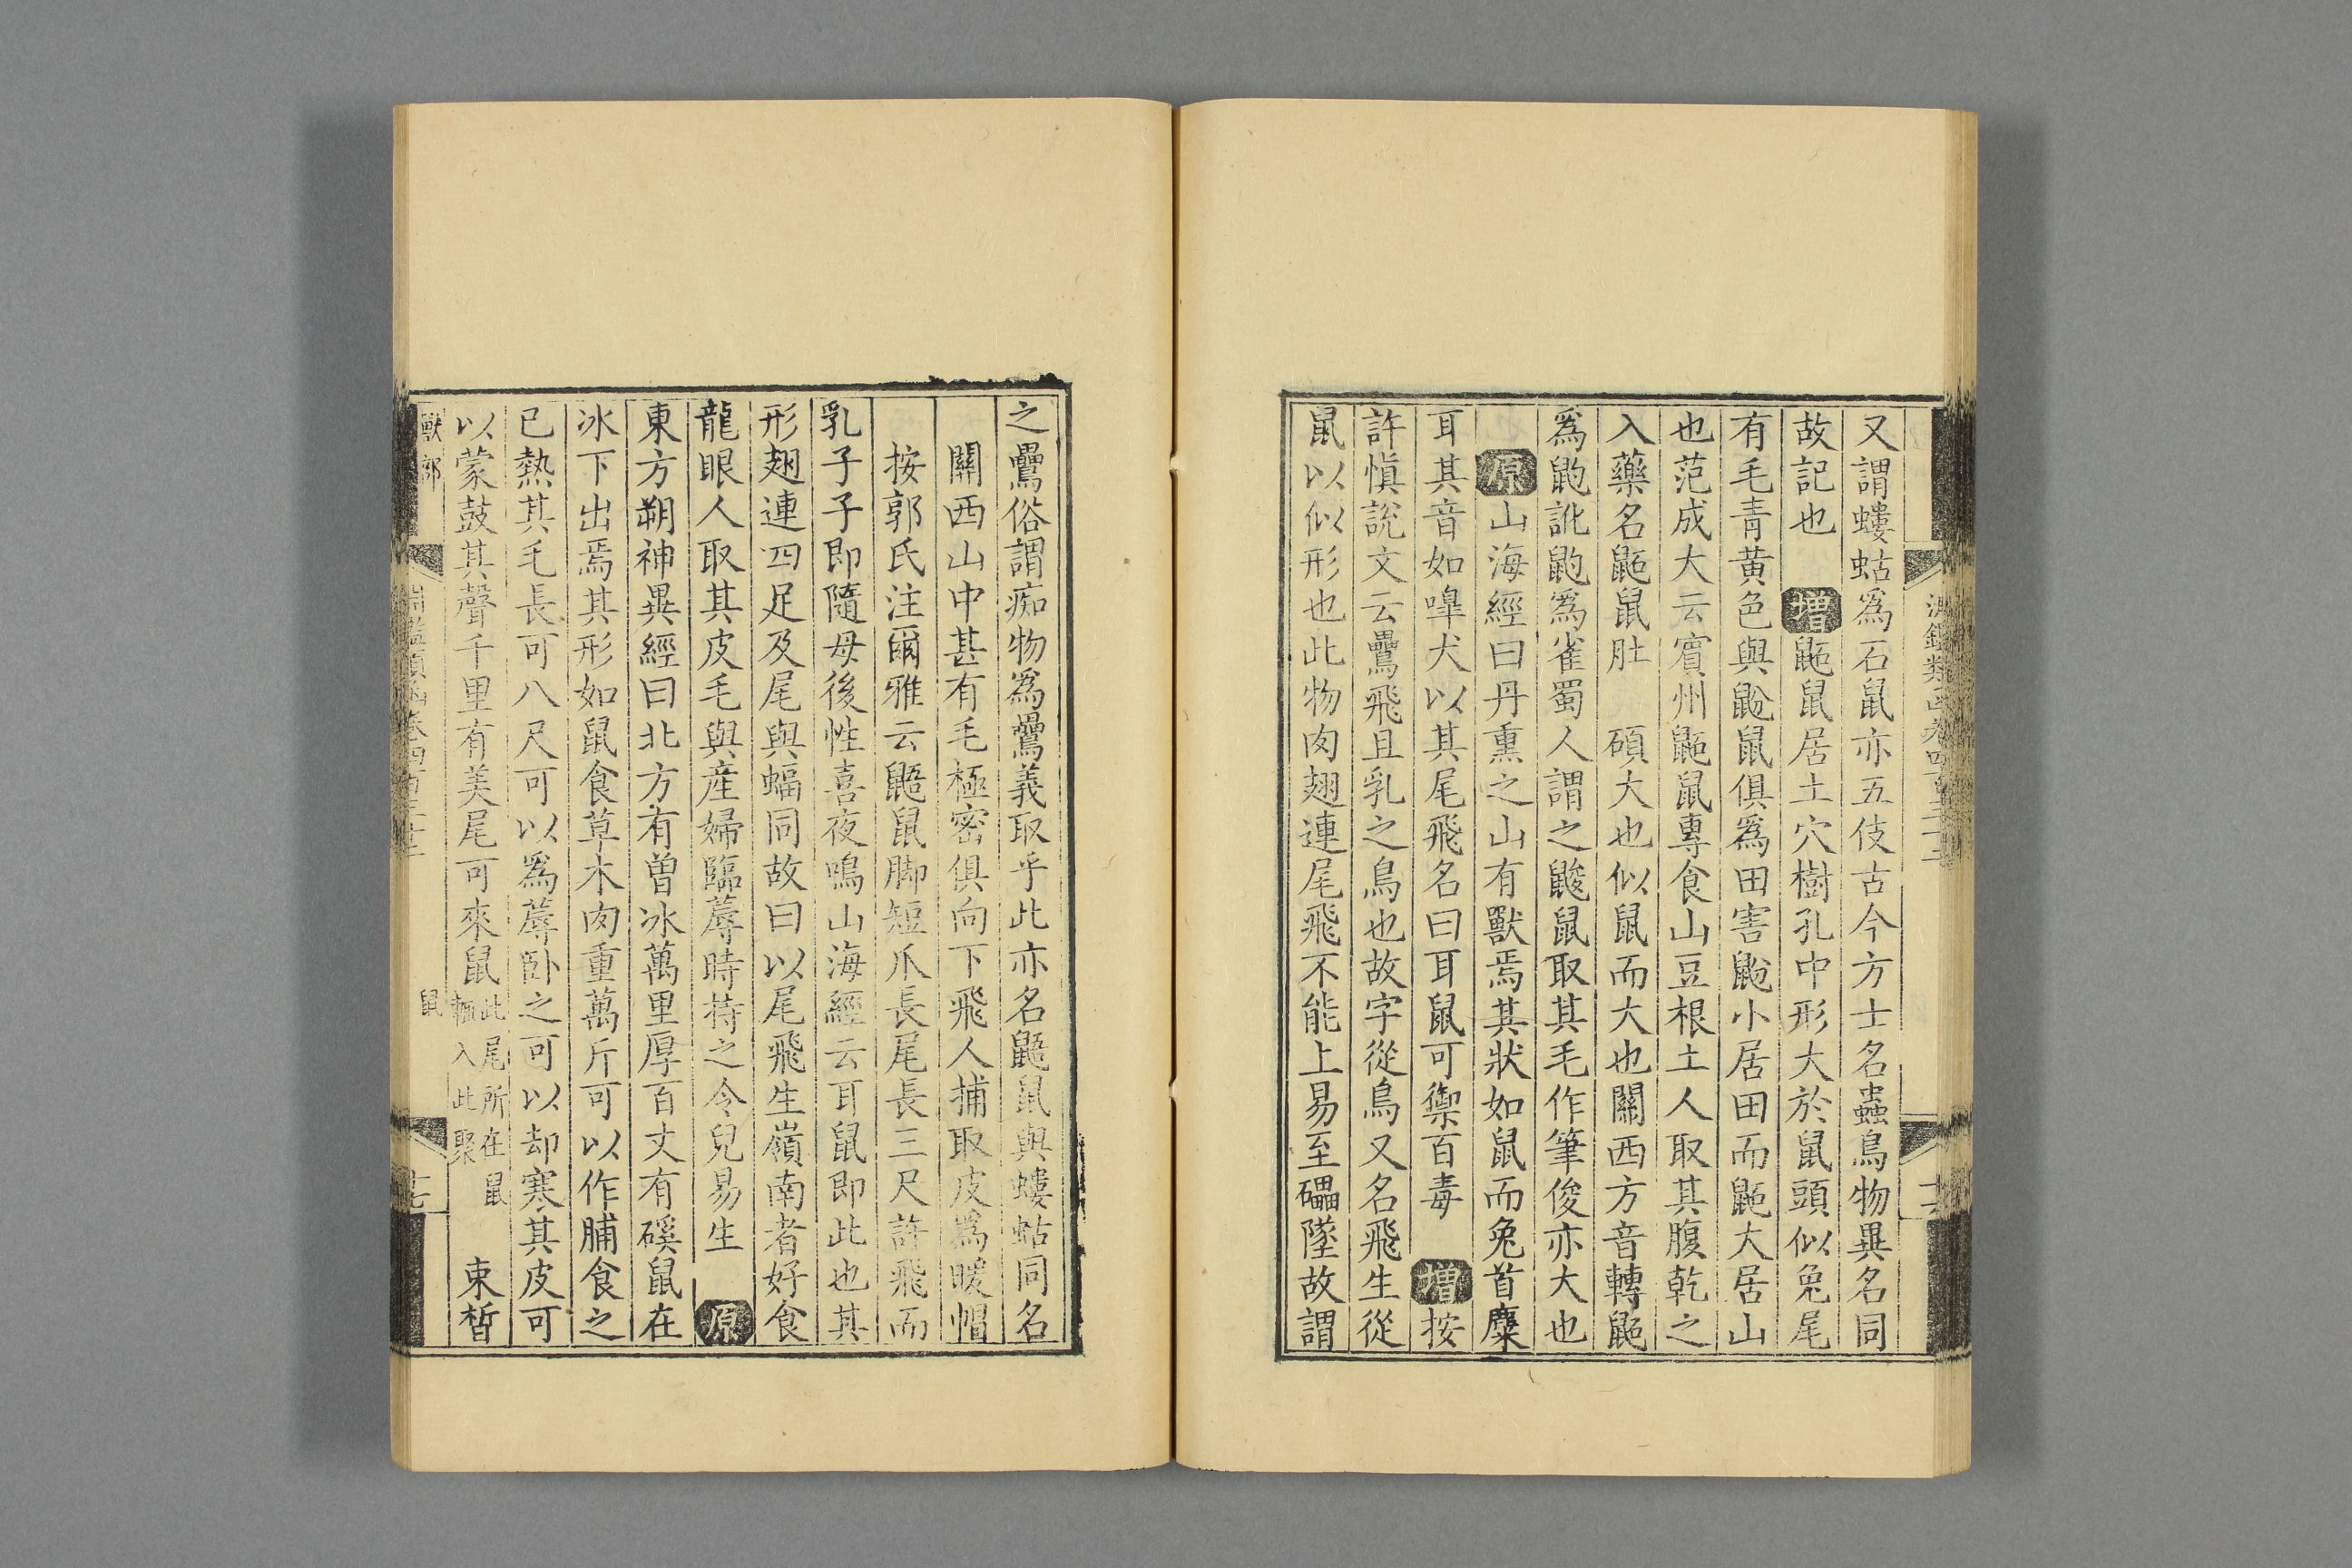 又謂螻蛄爲石鼠亦五伎古今方士名蟲鳥物異名同
故記也 增鼫鼠居土穴樹孔中形大於鼠頭似兔尾
有毛青黃色與鼢鼠俱爲田害鼢小居田而鼫大居山
也范成大云賔州鼫鼠專食山豆根土人取其腹乾之
入藥名鼫鼠肚 碩大也似鼠而大也關西方音轉鼫
爲鼩訛鼩爲雀蜀人謂之鼨鼠取其毛作筆俊亦大也
原山海經曰丹熏之山有獸焉其狀如鼠而兔首麋
耳其音如嘷犬以其尾飛名曰耳鼠可禦百毒 增按
許慎說文云鸓飛且乳之鳥也故字從鳥又名飛生從
鼠以似形也此物肉翅連尾飛不能上易至礧墜故謂
之鸓俗謂痴物爲鸓義取乎此亦名鼯鼠與螻蛄同名
關西山中甚有毛極密俱向下飛人捕取皮爲暖帽
按郭氏注爾雅云鼯鼠脚短爪長尾長三尺許飛而
乳子子即隨母後性喜夜鳴山海經云耳鼠即此也其
形翅連四足及尾與蝠同故曰以尾飛生嶺南者好食
龍眼人取其皮毛與産婦臨蓐時持之令兒易生 原
東方朔神異經曰北方有曾冰萬里厚百丈有磎鼠在
冰下出焉其形如鼠食草木肉重萬斤可以作脯食之
已熱其毛長可八尺可以爲蓐卧之可以却寒其皮可
以蒙鼓其聲千里有美尾可來鼠此尾所在鼠輒入此聚 束晳
獸部
鼠
十七